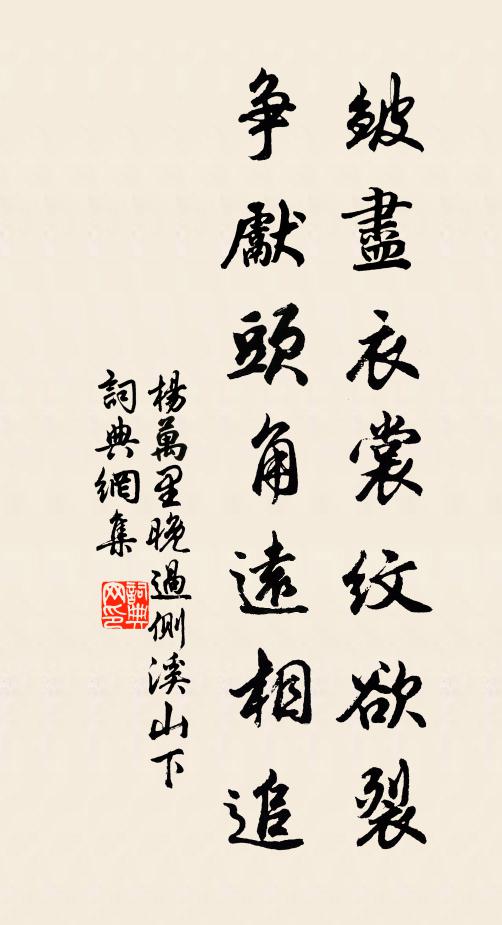 皴盡衣裳紋欲裂
爭獻頭角遠相追
楊萬里晚過側溪山下
詞典網集
詞典網印